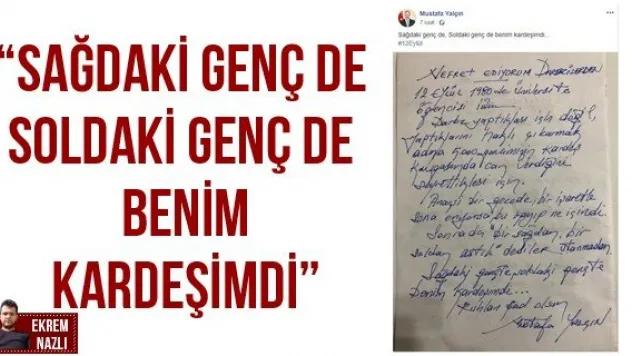 “SAĞDAKİ GENÇ DE
SOLDAKİ GENÇ DE
BENİM
KARDEŞİMDİ”
EKREM
NAZLI
Mustafa Yalçın
7 saat
Sağdaki genç de, Soldaki genç de benim kardeşimdi...
#12Eylül
Nefret ediyorum Darbecilerden
12 Eylül 1980'de Üniversite
öğrencisi idim
Darbe yaptıkları için değil,
yaptıklarını haklı çıkarmak
adına 5000 gencimizin kardeş
kavgasında can verdiğini
için.
bir gecede, bir işaretle
sona bu kayıp ne içindi.
Sonrada, "bir sağdan, bir
soldan astık" dediler utanmadan.
Sağdaki gençte soldaki gençte
benim kardeşimdi...
Ruhları şad olsun
Mustafa Yalçın